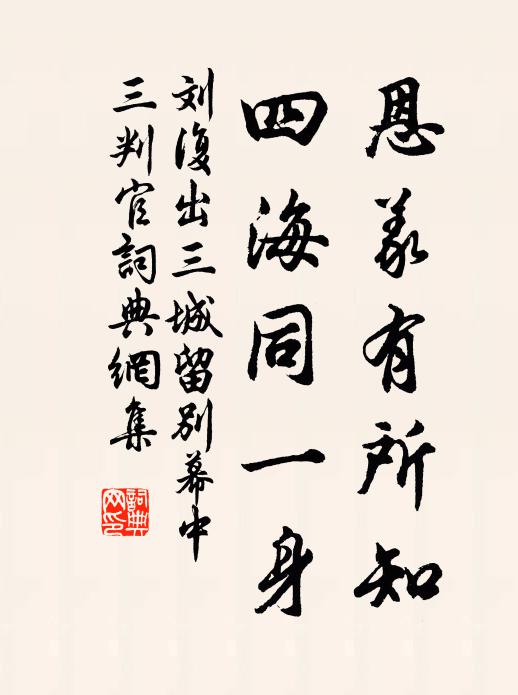 恩義有所知
四海同一身
刘復出三城留别幕中
三判官詞典網集
詞典
网印